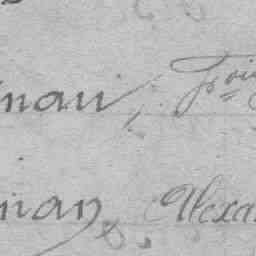 nau, Foi
nan, Alexa